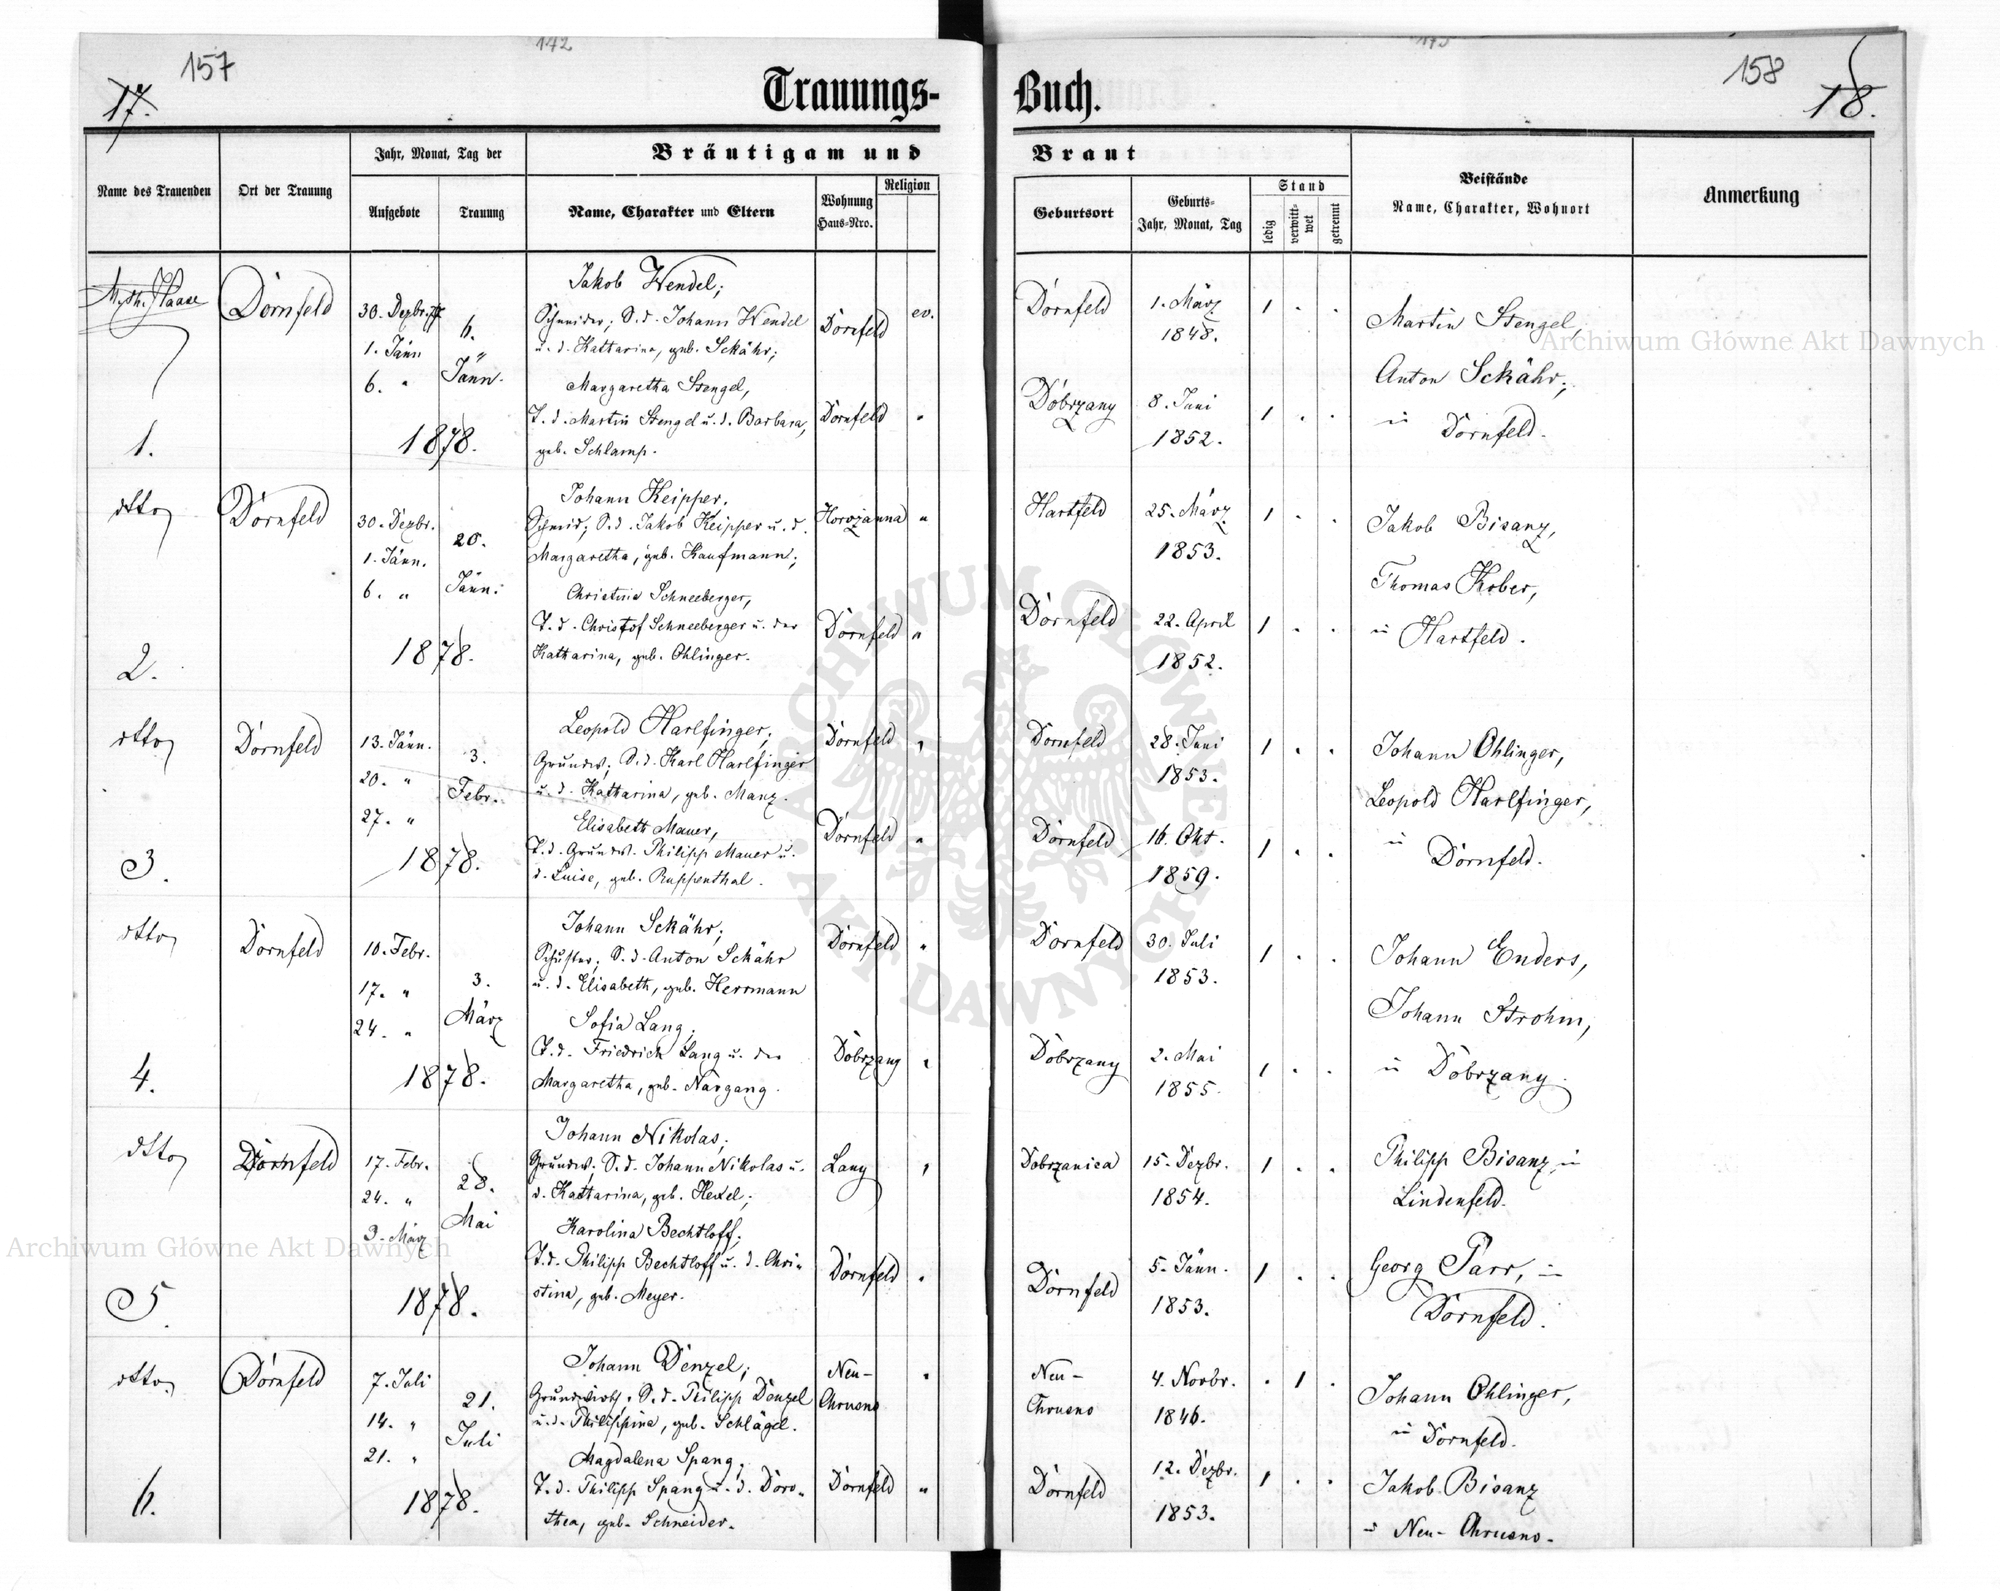 142
157
17.
Trauungs-
Buch.
158
18.
Name des Trauenden
Ort der Trauung
Jahr, Monat, Tag der
Aufgebote
Trauung
Bräutigam und
Name, Charakter und Eltern
Wohnung
Haus-Nro.
Religion
Braut
Geburtsort
Geburts-
Jahr, Monat, Tag
Stand
ledig
verwitt-
wet
getrennt
Beistände
Name, Charakter, Wohnort
Anmerkung
Haase
1.
Dornfeld
30. Dezbr.
1. Jänn
6. "
6.
Jänn.
1878.
Jakob Wendel;
Schneider; S. d. Johann Wendel
u. d. Katharina, geb. Sckähr;
Margaretha Stengel,
T. d. Martin Stengel u. d. Barbara,
geb. Schlamp.
Dornfeld
Dornfeld
ev.
"
Dornfeld
1. März
1848.
1 . .
Dobrzany
8. Juni
1852.
1 . .
Martin Stengel,
Anton Sckähr;
in Dornfeld.
dtto
2.
Dornfeld
30. Dezbr.
1. Jänn.
6. "
20.
Jänn.
1878.
Johann Keipper,
Schmid; S. d. Jakob Keipper u. d.
Margaretha, geb. Kaufmann;
Christina Schneeberger,
T. d. Christof Schneeberger u. der
Katharina, geb. Ohlinger.
Horozanna
Dornfeld
"
"
Hartfeld
25. März
1853.
1 . .
Dornfeld
22. April
1852.
1 . .
Jakob Bisanz,
Thomas Kober,
in Hartfeld.
dtto
3.
Dornfeld
13. Jänn.
20. "
27. "
3.
Febr.
1878.
Leopold Harlfinger,
Grundw; S. d. Karl Harlfinger
u. d. Katharina, geb. Manz.
Elisabeth Mauer,
T. d. Grundw. Philipp Mauer u.
d. Luise, geb. Ruppenthal.
Dornfeld
Dornfeld
"
"
Dornfeld
28. Juni
1853.
1 . .
Dornfeld
16. Okt.
1859.
1 . .
Johann Ohlinger,
Leopold Harlfinger,
in Dornfeld.
dtto
4.
Dornfeld
10. Febr.
17. "
24. "
3.
März
1878.
Johann Sckähr;
Schuster; S. d. Anton Sckähr
u. d. Elisabeth, geb. Herrmann
Sofia Lang,
T. d. Friedrich Lang u. der
Margaretha, geb. Nargang.
Dornfeld
Dobrzany
"
"
Dornfeld
30. Juli
1853.
1 . .
Dobrzany
2. Mai
1855.
1 . .
Johann Enders,
Johann Strohm,
in Dobrzany.
dtto
5.
Dornfeld
17. Febr.
24. "
3. März
28.
Mai
1878.
Johann Nikolas;
Grundw; S. d. Johann Nikolas u.
d. Katharina, geb. Hexel;
Karolina Bechtloff;
T. d. Philipp Bechtloff u. d. Chri-
stina, geb. Meyer.
Lany
Dornfeld
"
"
Dobrzanica
15. Dezbr.
1854.
1 . .
Dornfeld
5. Jänn.
1853.
1 . .
Philipp Bisanz, in
Lindenfeld.
Georg Parr, in
Dornfeld.
dtto
6.
Dornfeld
7. Juli
14. "
21. "
21.
Juli
1878.
Johann Denzel;
Grundwirth; S. d. Philipp Denzel
u. d. Philippina, geb. Schlägel.
Magdalena Spang,
T. d. Philipp Spang u. d. Doro-
thea, geb. Schneider.
Neu-
Chrusno
Dornfeld
"
"
Neu-
Chrusno
4. Novbr.
1846.
. 1 .
Dornfeld
12. Dezbr.
1853.
1 . .
Johann Ohlinger,
in Dornfeld.
Jakob Bisanz
in Neu-Chrusno.
Archiwum Główne Akt Dawnych
Archiwum Główne Akt Dawnych
ARCHIWUM GŁÓWNE AKT DAWNYCH